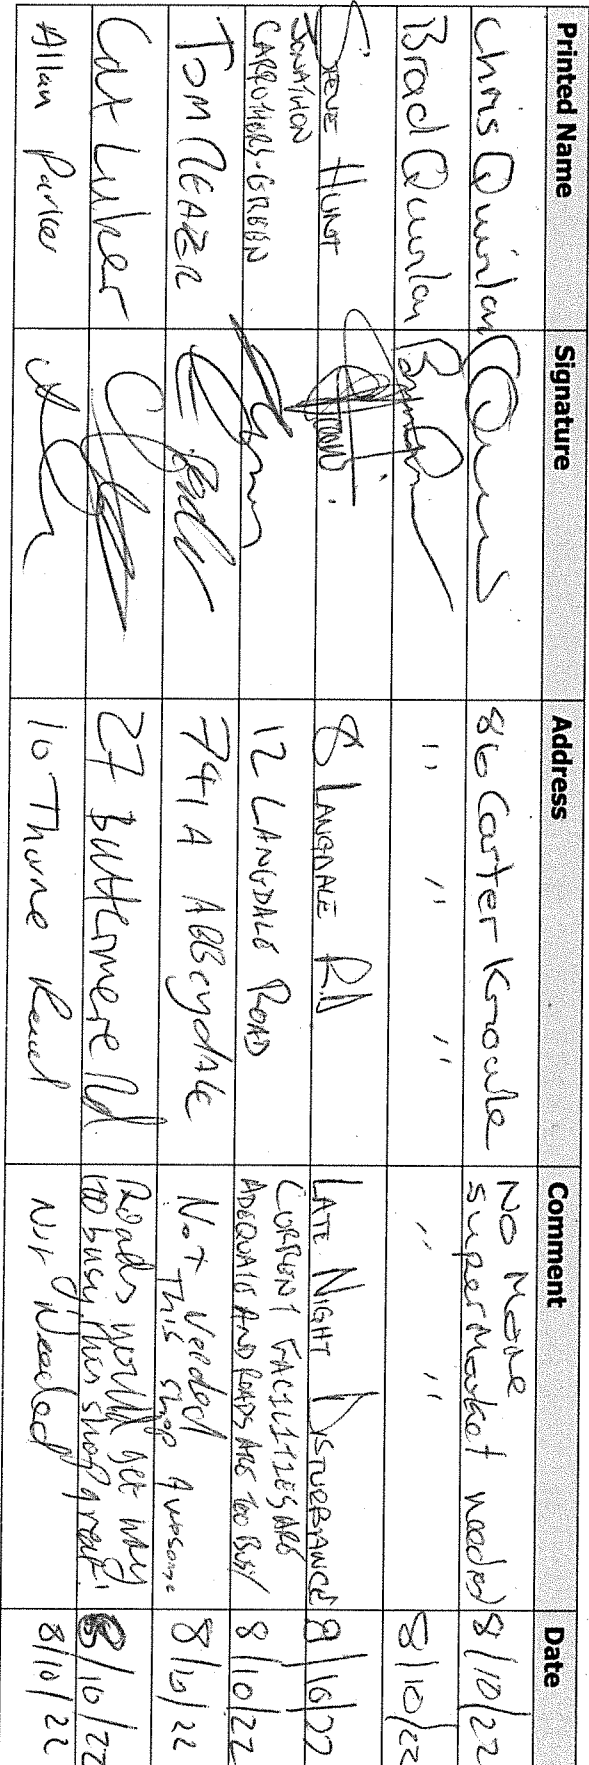 Printed Name Signature Address Comment Date
Chris Quinlan 86 Carter Knowle No More supermarket needed 8/10/22
Brad Quinlan " " " " " 8/10/22
STEVE HUNT 8 LANGDALE RD LATE NIGHT DISTURBANCE 8/10/22
JONATHON
CARRUTHERS-GREEN 12 LANGDALE ROAD CURRENT FACILITIES ARE
ADEQUATE AND ROADS ARE TOO BUSY 8/10/22
TOM 741A ABBeydALE Not Needed
This shop Awesome 8/10/22
Cat Luker 27 Buttermere Rd Roads would get way
too busy, this shop great! 8/10/22
Allan Parker 10 Thorne Road Not Needed 8/10/22